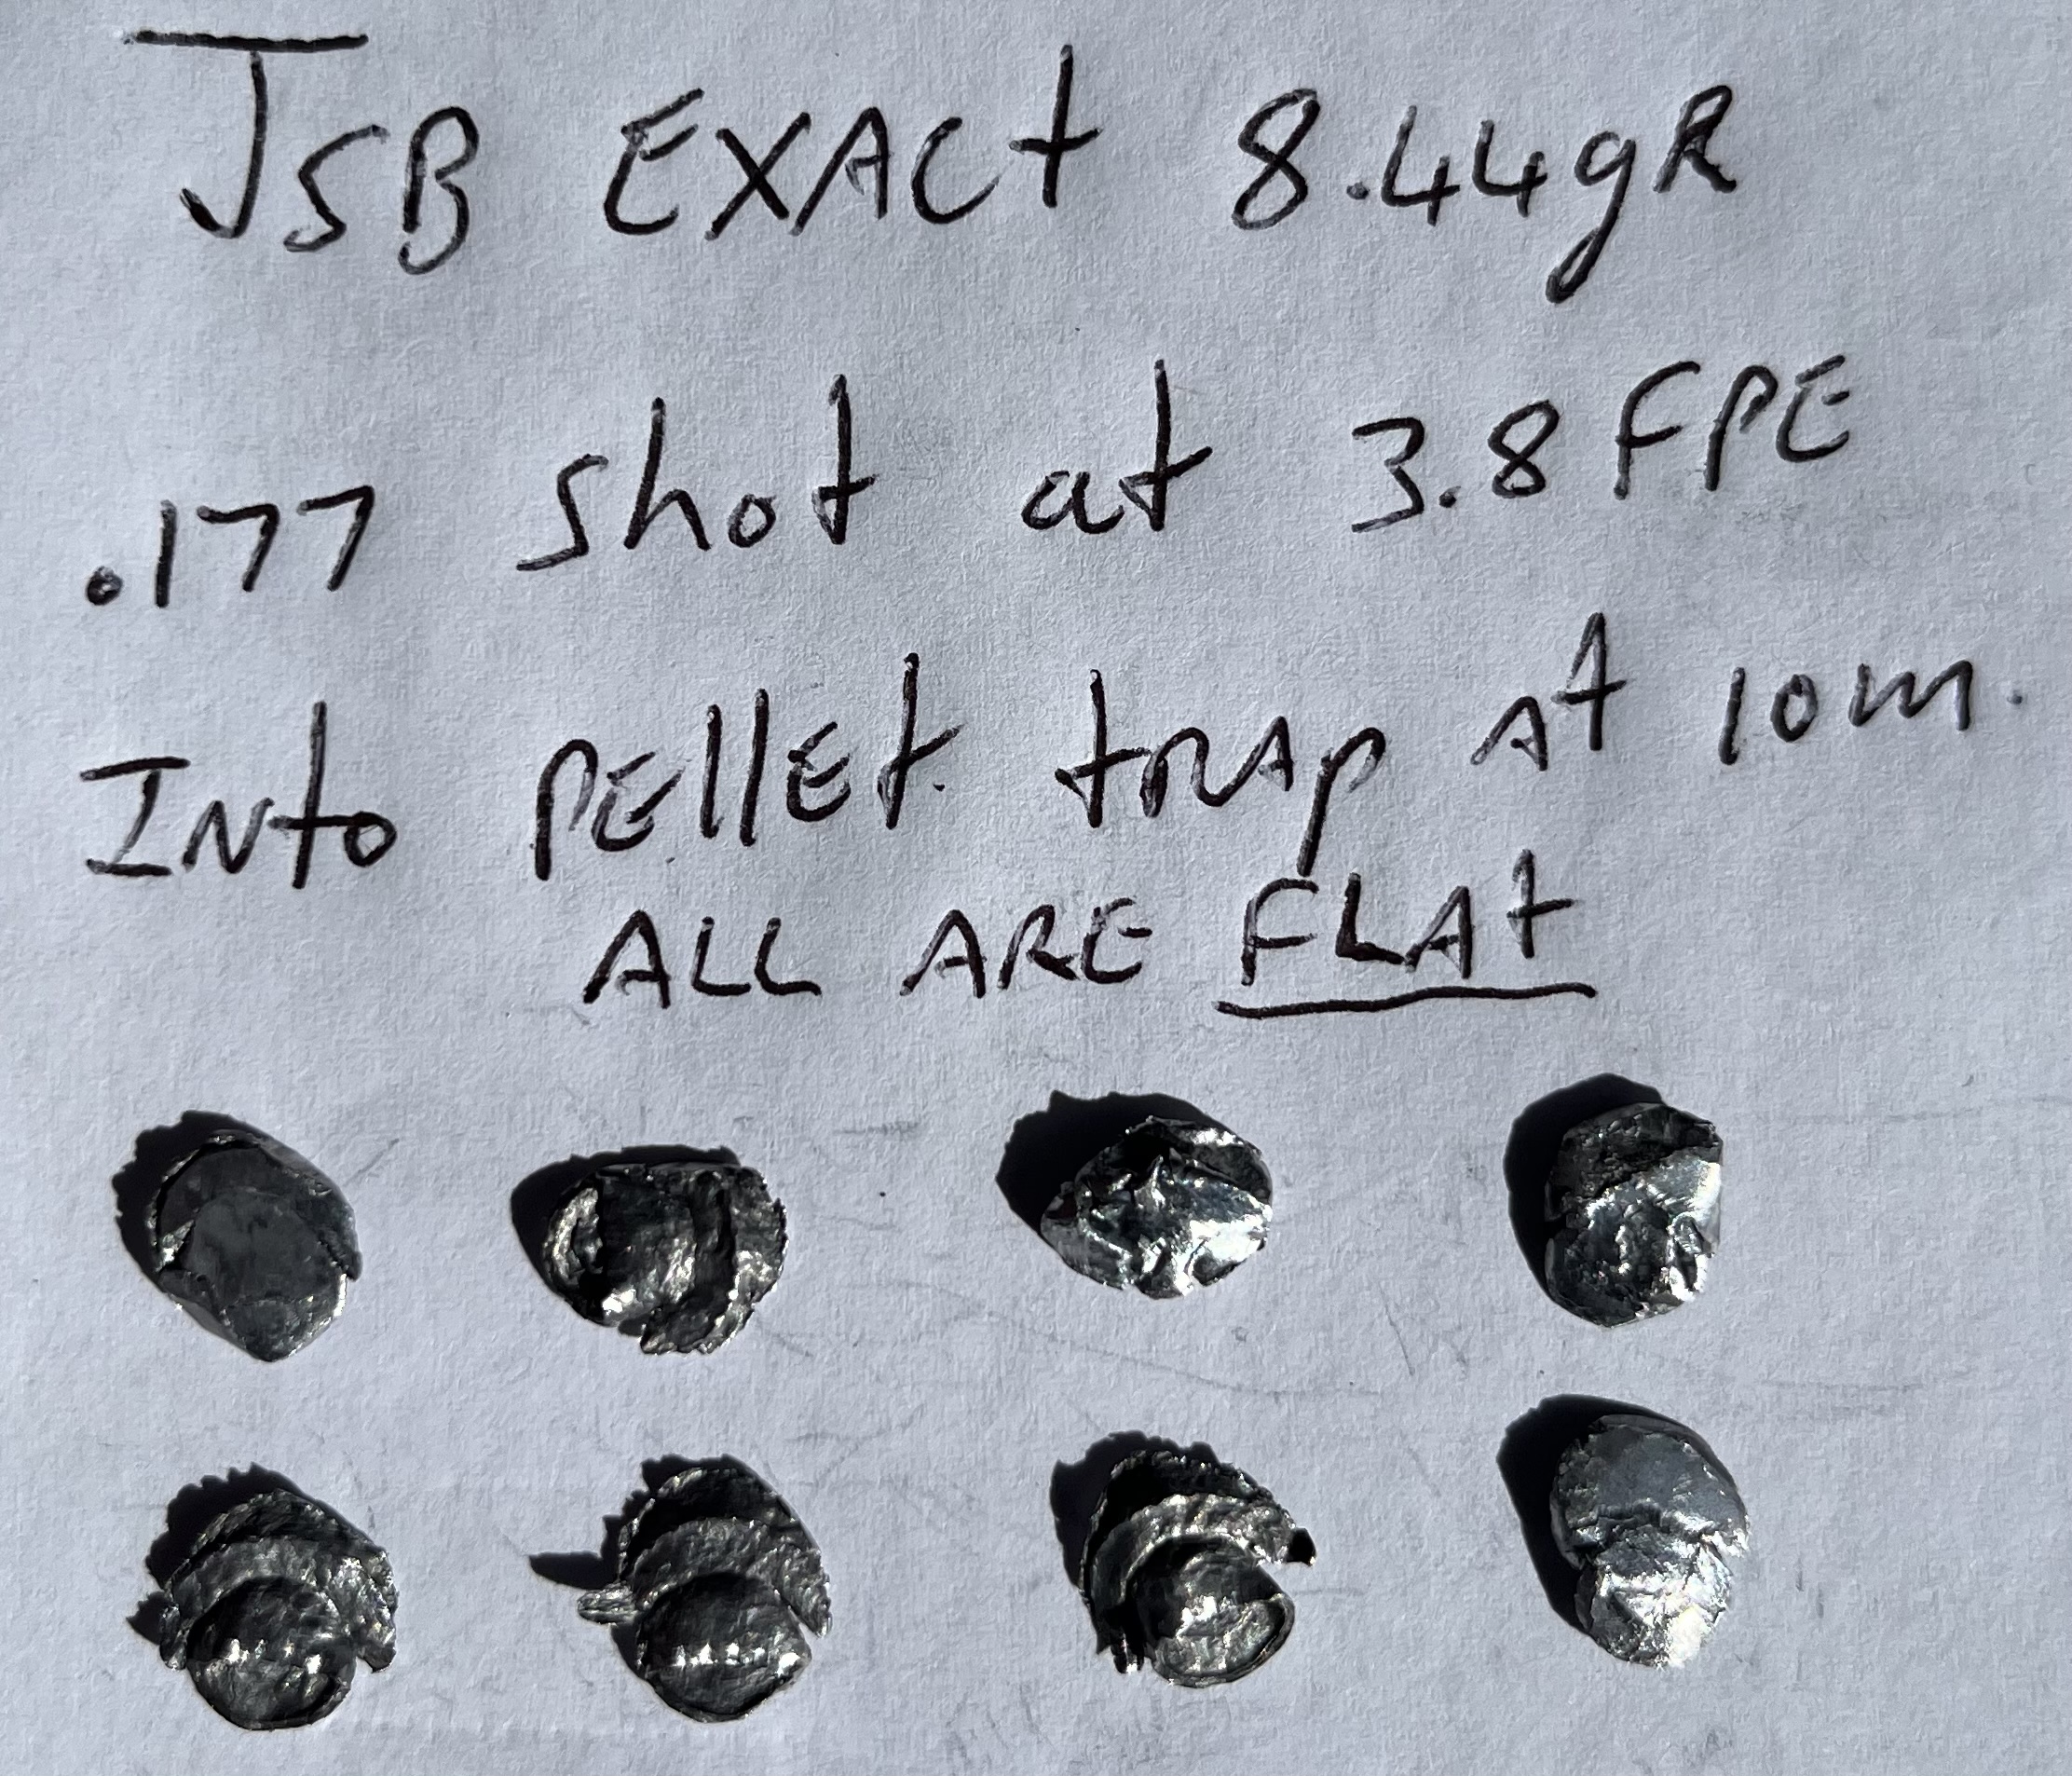 JSB EXACt 8.44gR
.177 shot at 3.8 FPE
INto PEllEt tRAp At 10m.
ALL ARE FLAt